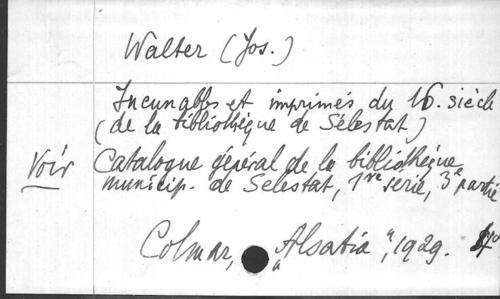 Walter (Jos.)
Incunables et imprimés du 16. siècle
(de la bibliothèque de Sélestat)
Voir Catalogue général de la bibliothèque
municip. de Sélestat, 1re série, 3e partie
Colmar, „Alsatia", 1929. 4°